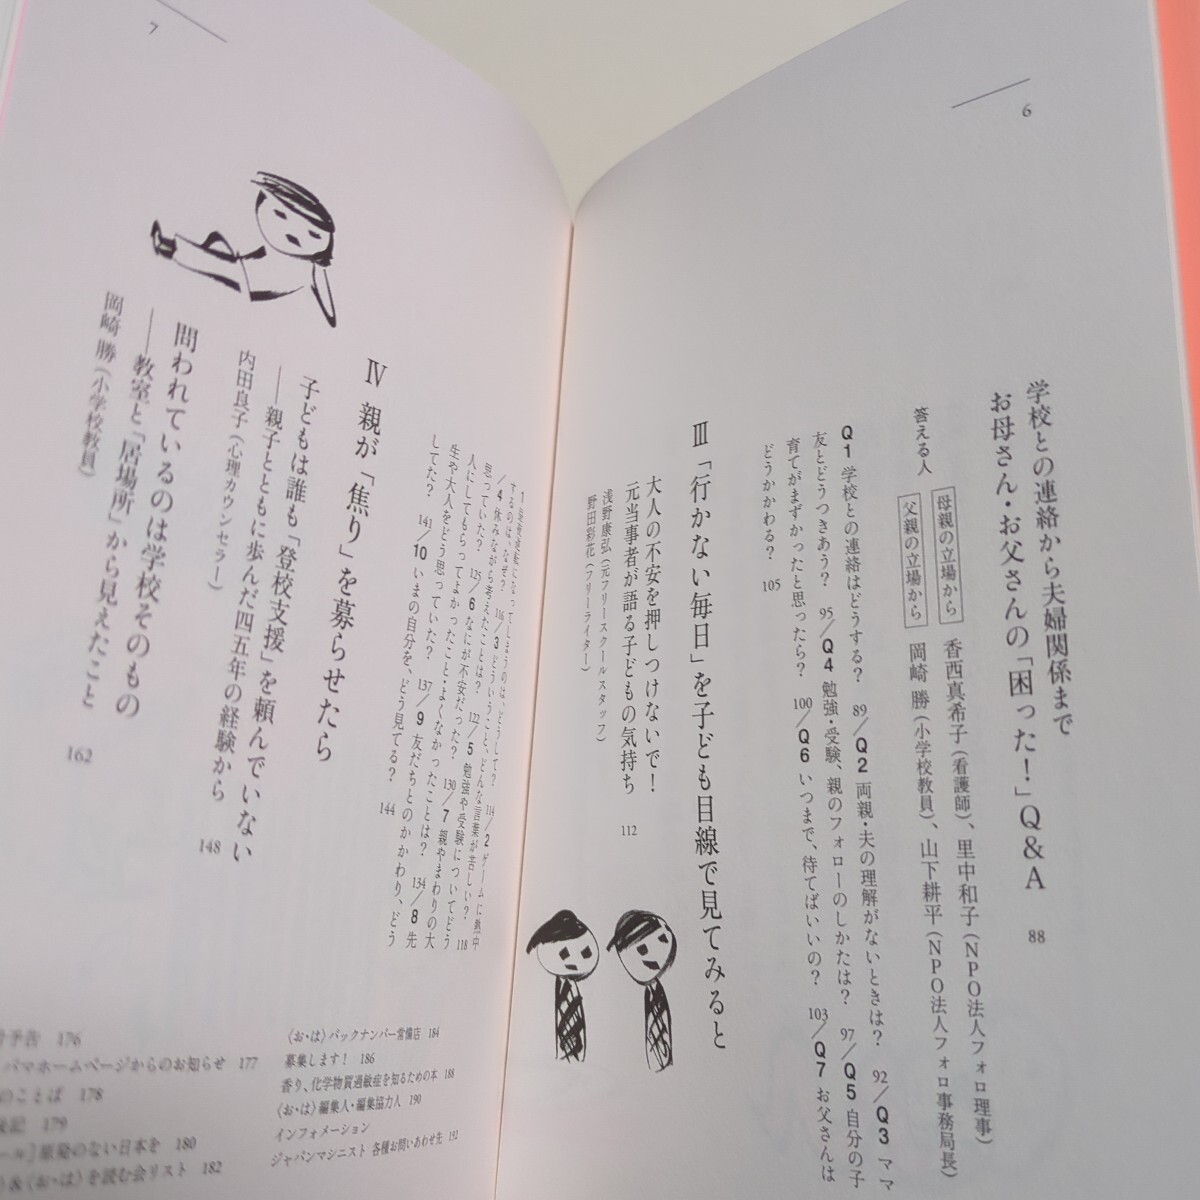 6
学校との連絡から夫婦関係まで
お母さん・お父さんの「困った!」Q&A 88
答える人
母親の立場から 香西真希子(看護師)、里中和子(NPO法人フォロ理事)
父親の立場から 岡崎 勝(小学校教員)、山下耕平(NPO法人フォロ事務局長)
Q1 学校との連絡はどうする? 89/Q2 両親・夫の理解がないときは? 92/Q3 ママ
友とどうつきあう? 95/Q4 勉強・受験、親のフォローのしかたは? 97/Q5 自分の子
育てがまずかったと思ったら? 100/Q6 いつまで、待てばいいの? 103/Q7 お父さんは
どうかかわる? 105
Ⅲ 「行かない毎日」を子ども目線で見てみると
大人の不安を押しつけないで!
元当事者が語る子どもの気持ち 112
浅野康弘(元フリースクールスタッフ)
野田彩花(フリーライター)
1 昼夜逆転になってしまうのは、どうして? 114/2 ゲームに熱中
するのはなぜ? 116/3 どういうこと、どんな言葉が苦しい? 118
/4 休みながら考えたことは? 122/5 勉強や受験についてどう
思っていた? 125/6 なにが不安だった? 130/7 親やまわりの大
人にしてもらってよかったこと・よくなかったことは? 134/8 先
生や大人をどう思っていた? 137/9 友だちとのかかわり、どう
してた? 141/10 いまの自分を、どう見てる? 144
Ⅳ 親が「焦り」を募らせたら
子どもは誰も「登校支援」を頼んでいない
――親子とともに歩んだ四五年の経験から 148
内田良子(心理カウンセラー)
問われているのは学校そのもの
――教室と「居場所」から見えたこと 162
岡崎 勝(小学校教員)
7
〈お・は〉バックナンバー常備店 184
募集します! 186
香り、化学物質過敏症を知るための本 188
〈お・は〉編集人・編集協力人 190
インフォメーション
ジャパンマシニスト 各種お問いあわせ先 192
予告 176
パマホームページからのお知らせ 177
のことば 178
後記 179
ール]原発のない日本を 180
)&〈お・は〉を読む会リスト 182